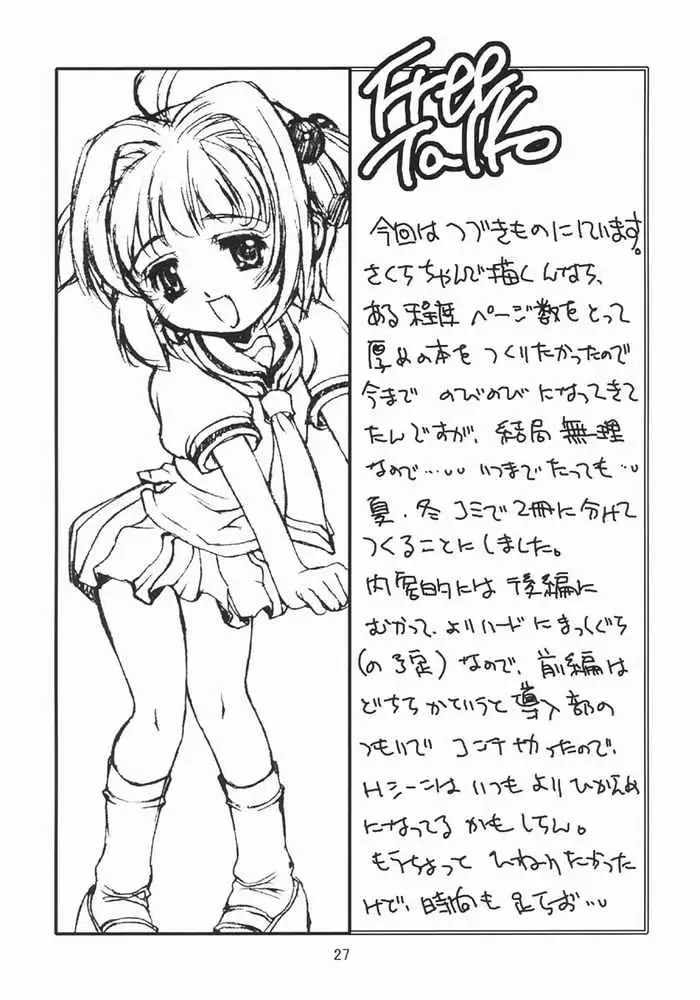 Free
Talk
今回はつづきものにしています。
さくらちゃんで描くんなら、
ある程度ページ数をとって
厚めの本をつくりたかったので
今までのびのびになってきて
たんですが、結局無理
なので…いつまでたっても…
夏・冬コミで2冊に分けて
つくることにしました。
内容的には後編に
むかって、よりハードにまっしぐら
(の予定)なので、前編は
どちらかというと導入部の
つもいでコンテやったので、
Hシーンはいつもよりひかえめ
になってるかもしらん。
もうちょっとひねりたかった
けど、時間も足らお…
27